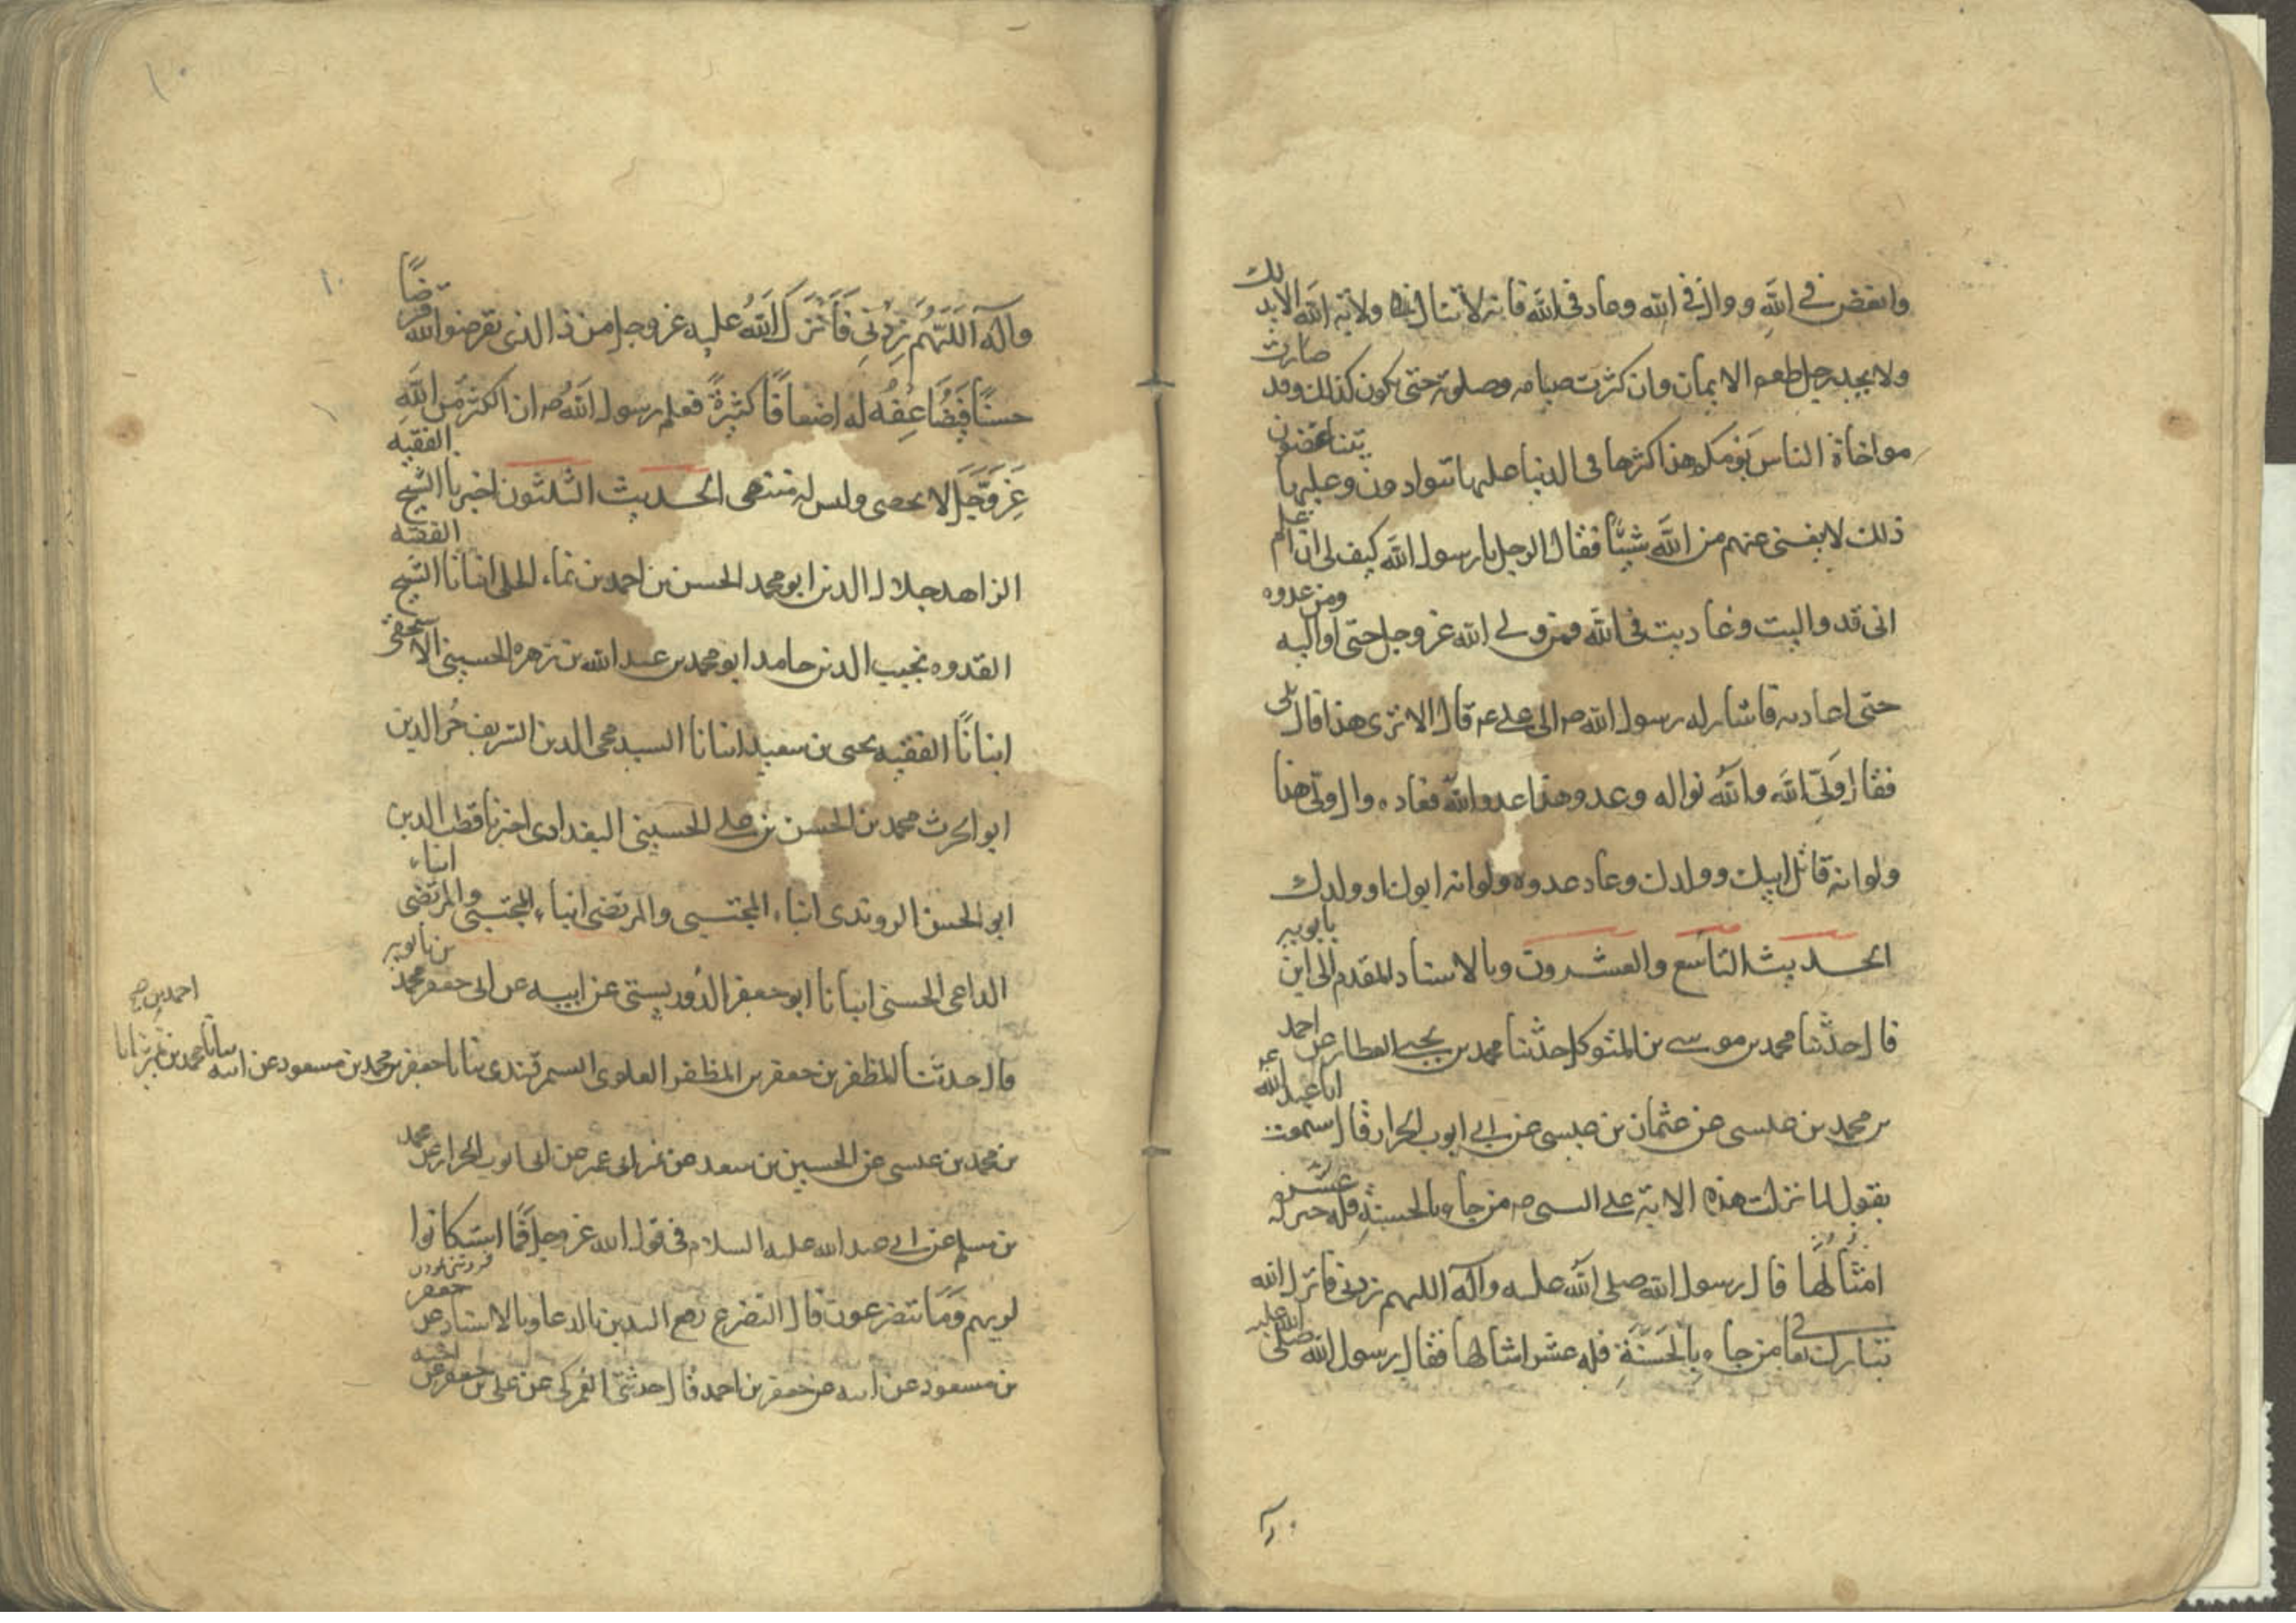 وابغض في الله ووال في الله وعاد في الله فانه لا تنال ولاية الله الا بذلك
ولا يجد رجل طعم الايمان وان كثرت صيامه وصلوته حتى يكون كذلك وقد صارت
مواخاة الناس يومكم هذا اكثرها في الدنيا عليها تتوادون وعليها يتباغضون
ذلك لا يغنى عنهم من الله شيئا فقال الرجل يا رسول الله كيف لى ان اعلم
انى قد واليت وعاديت في الله ومن ولى الله عز وجل حتى اواليه ومن عدوه
حتى اعاديه فاشار له رسول الله صه الى على عه قال الا ترى هذا قال بلى
فقال ولى الله والله نواله وعدو هذا عدو الله فعاده وال ولى هذا
ولو انه قاتل ابيك وولدك وعاد عدوه ولو انه ابوك او ولدك
الحديث التاسع والعشرون وبالاسناد المقدم الى ابن بابويه
قال حدثنا محمد بن موسى بن المتوكل حدثنا محمد بن يحيى العطار عن احمد
بن محمد بن عيسى عن عثمان بن عيسى عن ابى ايوب الخراز قال سمعت ابا عبد الله عه
يقول لما نزلت هذه الاية على النبى صه من جاء بالحسنة فله عشر
امثالها قال رسول الله صلى الله عليه وآله اللهم زدنى فانزل الله
تبارك وتعا من جاء بالحسنة فله عشر امثالها فقال رسول الله صلى الله عليه
وآله اللهم زدنى فانزل الله عليه عز وجل من ذا الذى يقرضوا الله قرضا
حسنا فيضاعفه له اضعافا كثيرة فعلم رسول الله صه ان الكثر من الله
عز وجل لا يحصى وليس له منتهى الحديث الثلثون اخبرنا الشيخ الفقيه
الزاهد جلال الدين ابو محمد الحسن بن احمد بن نماء الحلى انبانا الشيخ الفقيه
القدوه نجيب الدين حامد ابو محمد بن عبد الله بن زهره الحسينى الاسحقى
انبانا الفقيه يحيى بن سعيد انبانا السيد محى الدين الشريف عز الدين
ابو الحرث محمد بن الحسن بن على الحسينى البغدادى اخبرنا قطب الدين
ابو الحسن الروندى انباء المجتبى والمرتضى انباء المجتبى والمرتضى انباء
الداعى الحسنى انبانا ابو جعفر الدوريستى عن ابيه عن ابى جعفر محمد بن بابويه
قال حدثنا المظفر بن جعفر بن المظفر العلوى السمرقندى ثنانا جعفر بن محمد بن مسعود عن ابيه
بن محمد بن عيسى عن الحسين بن سعيد عن ابى عمير عن ابى ايوب الخراز عن محمد
بن مسلم عن ابى عبد الله عليه السلام في قول الله عز وجل فما استكانوا
لربهم وما يتضرعون قال التضرع رفع اليدين بالدعا وبالاسناد عن جعفر
بن مسعود عن ابيه عن جعفر بن احمد قال حدثنى العمركى عن على بن جعفر عن اخيه